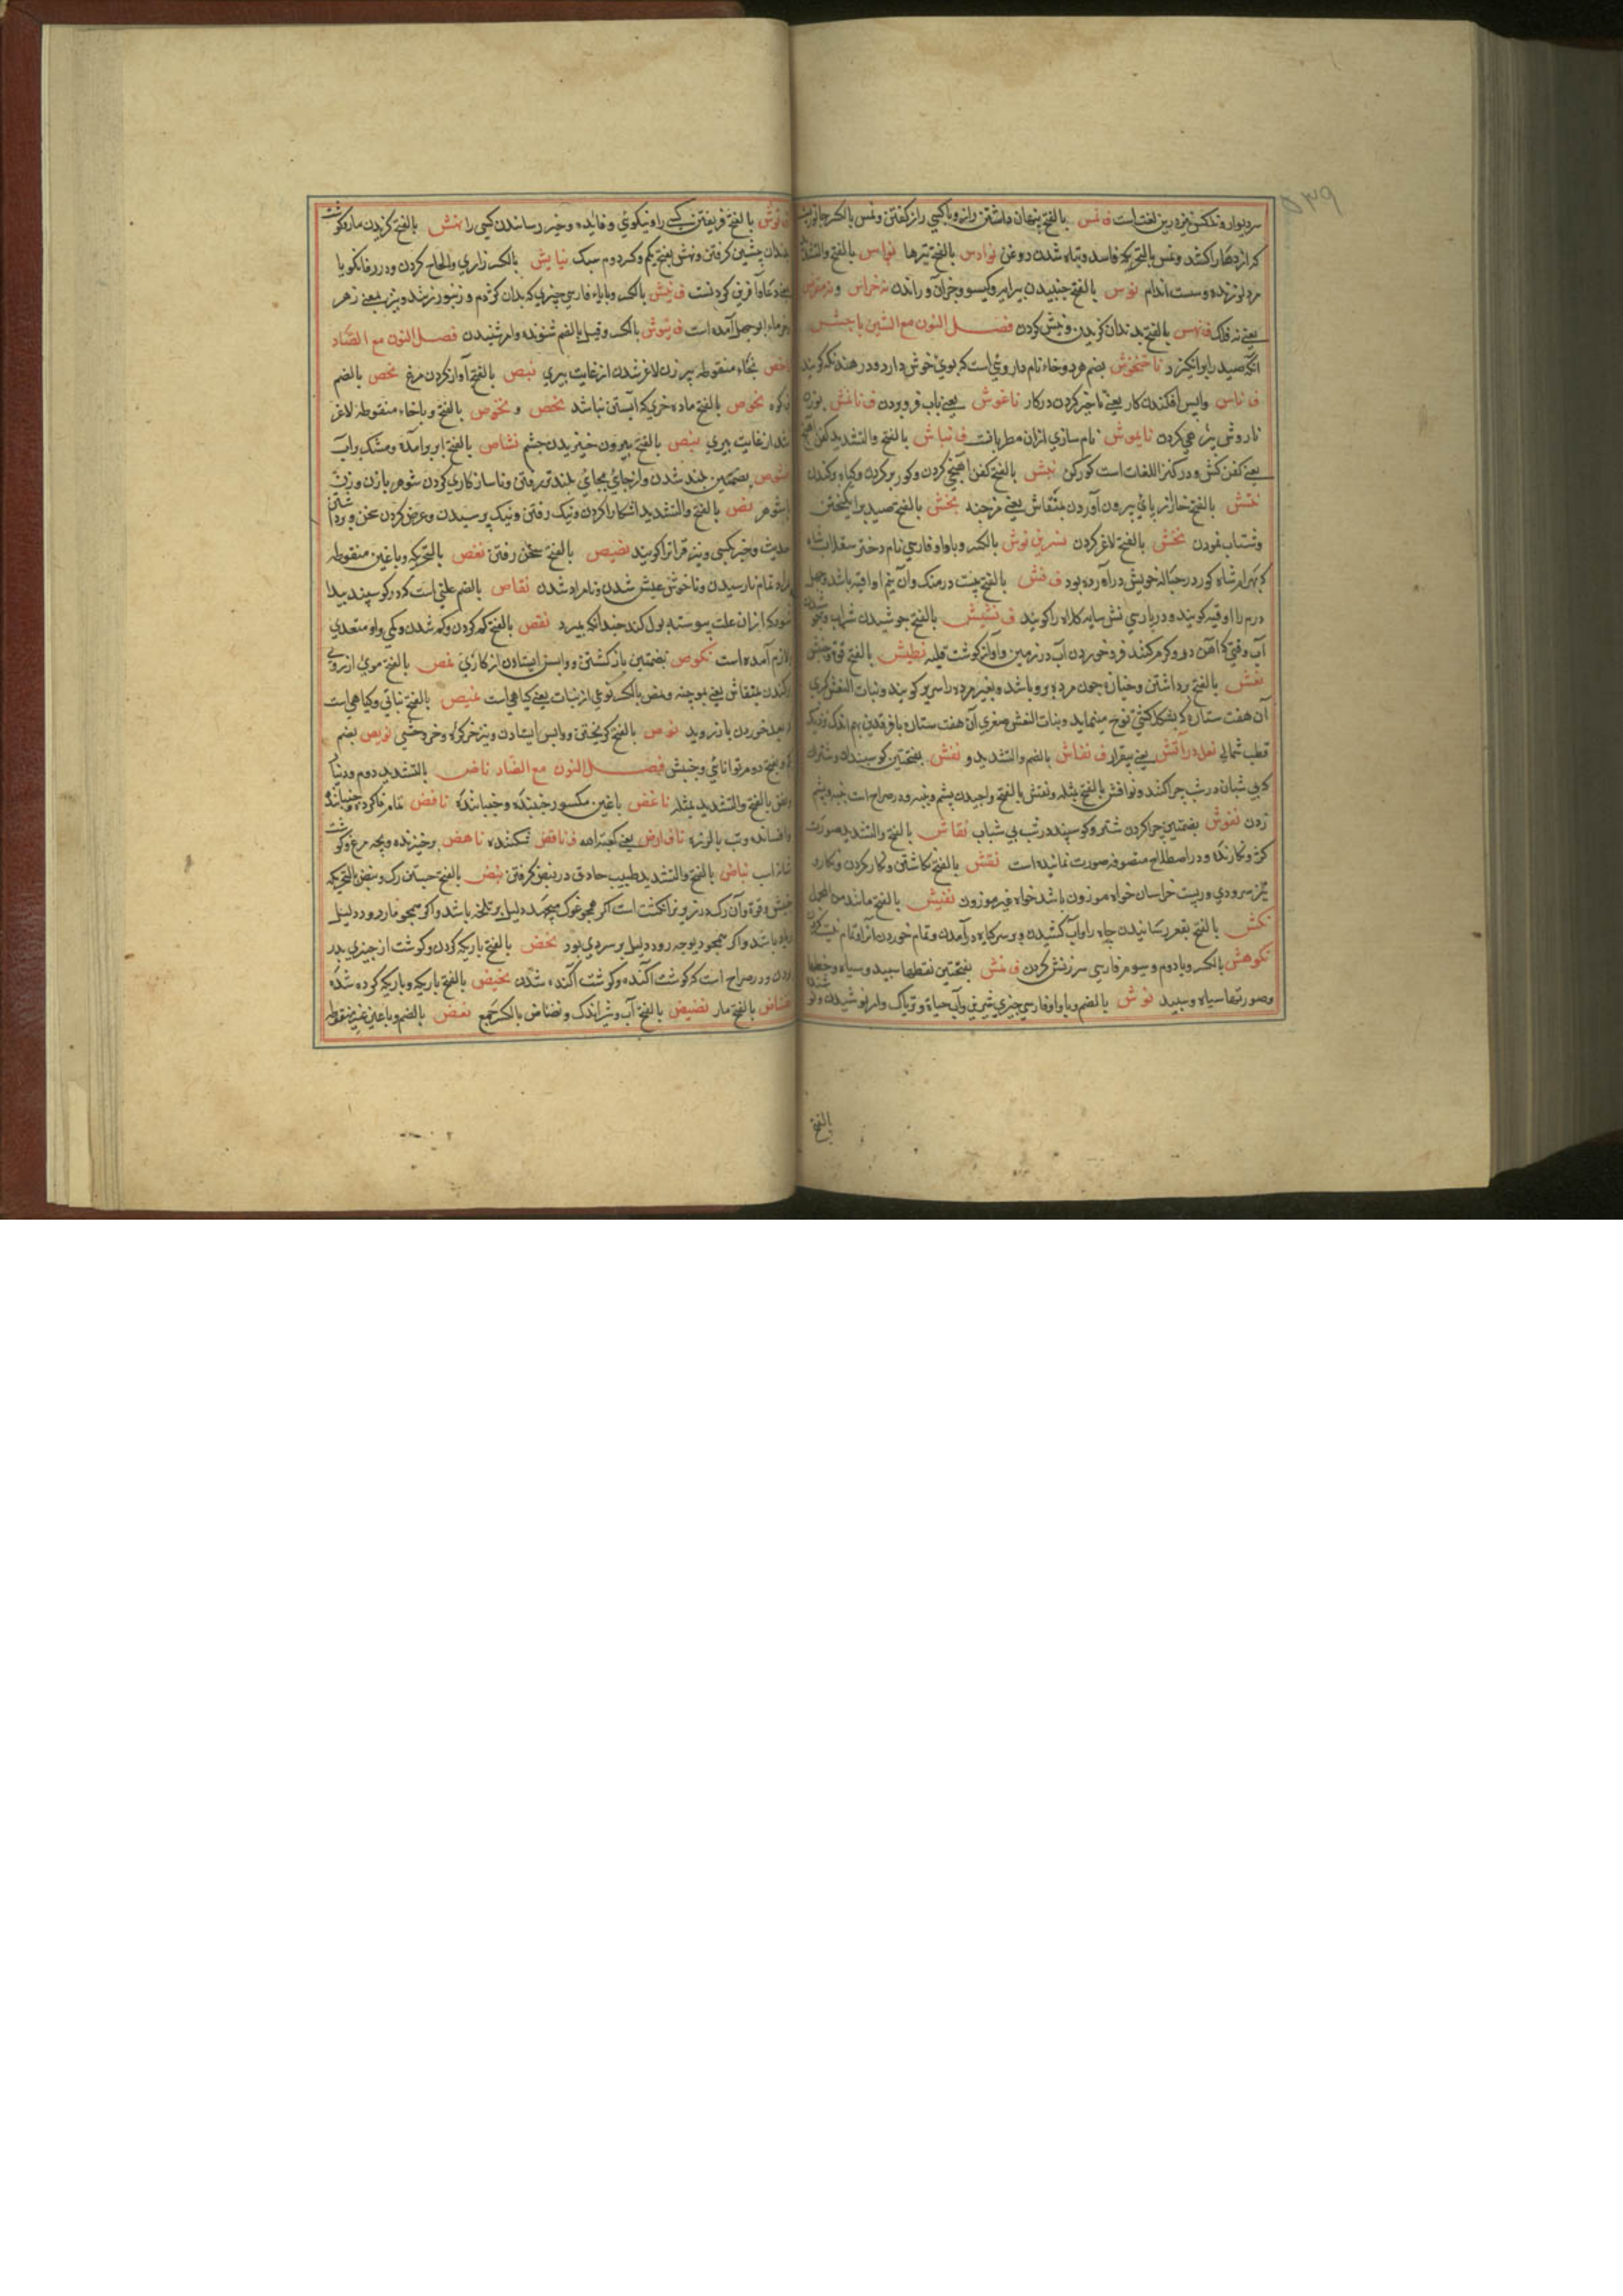 ۵۳۹
سر دیوار و تذکس نیز درین لغت است ف نمس بالفتح پنهان داشتن راز و با کسی راز کفتن و نمس بالکسر جانوریست
که اژدها را کشد و نمس بالتحریک فاسد و تباه شدن روغن نوادس بالفتح تیرها نواس بالفتح والتشدید
مرد لرزنده و سست اندام نوس بالفتح جنبیدن سرابر و کیسو و جز آن و راندن نه خراس و
یعنی نه فلک ف نهس بالفتح بدندان کزیدن و نیش کردن فصل النون مع الشین ناجش
انکه صید را برانکیزد ناختخوش بضم هر دو خاء نام داروئی است که بوی خوش دارد و در هند نکه کویند
ف ناس واپس افکندن کار یعنی تاخیر کردن در کار ناغوش یعنی باب فرو بردن ف ناغش
نام سازی از آن مطربانست ف نباش بالفتح والتشدید کفن آهنج
یعنی کفن کش و در کنز اللغات است کورکن نبش بالفتح کفن آهنجی کردن و کور بر کردن و کیاه برکندن
نتش بالفتح خار از پای بیرون آوردن بمنقاش یعنی موچنه نجش بالفتح صید برانکیختن
و شتاب نمودن نخش بالفتح لاغر کردن نسرین نوش بالکسر و باواو فارسی نام دختر سقلاب شاه
که بهرام شاه کور در حباله خویش در آورده بود ف نش بالفتح بیست درمنک و آن نیم اوقیه باشد و چهل
درم را اوقیه کویند و در پارسی نش سایه کلاه را کویند ف نشیش بالفتح جوشیدن شراب و
آب وقتی که آهن در و کرم کنند فرو خوردن آب در زمین و آواز کوشت قلیه نطیش بالفتح قوة و جنبش
نعش بالفتح برداشتن و جنازه چون مرده برو باشد و بغیر مرده را سریر کویند و بنات النعش کبری
آن هفت ستاره که بشکل کشتی نوح مینماید و بنات النعش صغری آن هفت ستاره با فرقدین بهم اندک نزدیک
قطب شمالی نعل در آتش یعنی بیقرار ف نفاش بالضم والتشدید و نفش بفتحتین کوسپندان و شتران
که بی شبان در شب چرا کنند و نوافش بالفتح مثله و نفش بالفتح واجیدن پشم و پنبه و در صراح است پنبه و پشم
زدن نفوش بضمتین چرا کردن شتر و کوسپند در شب بی شبان نقاش بالفتح والتشدید صورت
کر و نکارنده و در اصطلاح متصوفه صورت نماینده است نقش بالفتح نکاشتن و نکار کردن و نکار و
نیز سرودی و ریست خراسان خواه موزون باشد خواه غیر موزون نقیش بالفتح مانند
نکش بالفتح بقعر رسانیدن چاه را و آب کشیدن و بر سر کیاه در آمدن و تمام خوردن آنرا و تمام نیست کردن
نکوهش بالکسر و با دوم و سوم فارسی سرزنش کردن ف نمش بفتحتین نقطها سپید و سیاه و خطها
و صورتها سیاه و سپید نوش بالضم و باواو فارسی چیزی شیرین و آب حیاة و تریاک و امر نوشیدن
بالفتح
ف نوش بالفتح فریفتن کسی را و نیکوئی و فایده و خیر رسانیدن کسی را نهش بالفتح کزیدن مار و کوشت
بدندان پیشین کرفتن و نهش بفتح یکم و کسر دوم سبک نیایش بالکسر زاری و الحاح کردن و در زفانکویا
یعنی دعا و آفرین کردنست ف نیش بالکسر و بایاء فارسی چیزی که بدان کژدم و زنبور زند و نیز بمعنی زهر
آمده است ف نیوش بالکسر و قیل بالضم شنونده و امر شنیدن فصل النون مع الصاد
ناخص بخاء منقوطه پیر زن لاغر شدن از غایت پیری نبص بالفتح آواز کردن مرغ نحص بالضم
نحوص بالفتح ماده خری که آبستن نباشد نخص و نخوص بالفتح و باخاء منقوطه لاغر
شدن از غایت پیری نبص بالفتح بیرون خیزیدن چشم نشاص بالفتح ابر بر آمده و مشک
نشوص بضمتین بلند شدن و از جای بجای بلند تر رفتن و ناسازکاری کردن شوهر با زن و زن
با شوهر نص بالفتح والتشدید آشکارا کردن و نیک رفتن و نیک پرسیدن و عرض کردن سخن و برداشتن
حدیث و بخیر کسی و نیز قرانرا کویند نصیص بالفتح سخن رفتن نغص بالتحریک و باغین منقوطه
مراد تمام نارسیدن و ناخوش عیش شدن و نامراد شدن نقاص بالضم علتی است که در کوسپند پیدا
شود که از آن علت پیوسته بول کند چندانکه بمیرد نقص بالفتح کم کردن و کم شدن و کمی و او متعدی
و لازم آمده است نکوص بضمتین باز کشتن و واپس ایستادن از کاری نمص بالفتح موی از روی
برکندن بمنقاش یعنی موچنه و نمص بالکسر نوعی از نبات یعنی کیاهی است نمیص بالفتح نباتی و کیاهی است
که بعد خوردن باز روید نوص بالفتح کریختن و واپس ایستادن و نیز خر کره و خر وحشی نویص بضم
و بفتح دوم توانائی و جنبش فصل النون مع الضاد ناض بالتشدید درم و دینار
و نض بالفتح والتشدید مثله ناغض باغین مکسور جنبنده و جنبانده نافض تمام ناکرده و جنبانیده
و افشاننده و تب با لرزه نافارض یعنی ف ناقض شکننده ناهض برخیزنده و بچه مرغ و کوشت
شانه اسب نباض بالفتح والتشدید طبیب حاذق در نبض کرفتن نبض بالفتح جستن رک و نبض بالتحریک
جنبش و قوة و آن رک در زیر نر انکشت است اکر همچو غوک میجهد دلیل بر تلخه باشد و اکر همچو مار رود دلیل
باد باشد و اکر همچو دیوچه رود دلیل بر سردی بود نحض بالفتح باریک کردن و کوشت از چیزی بدر
کردن و در صراح است که کوشت آکنده و کوشت آکنده شدن نحیض بالفتح باریک و باریک کرده شده
نضناض بالفتح مار نضیض بالفتح آب و شر اندک و نضاض بالکسر جمع نعض بالضم و باعین غیر منقوطه